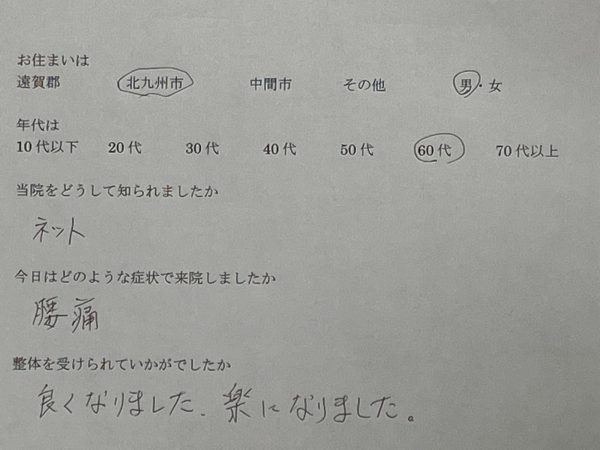 お住まいは
遠賀郡 北九州市 中間市 その他 男・女
年代は
10代以下 20代 30代 40代 50代 60代 70代以上
当院をどうして知られましたか
ネット
今日はどのような症状で来院しましたか
腰痛
整体を受けられていかがでしたか
良くなりました、楽になりました。